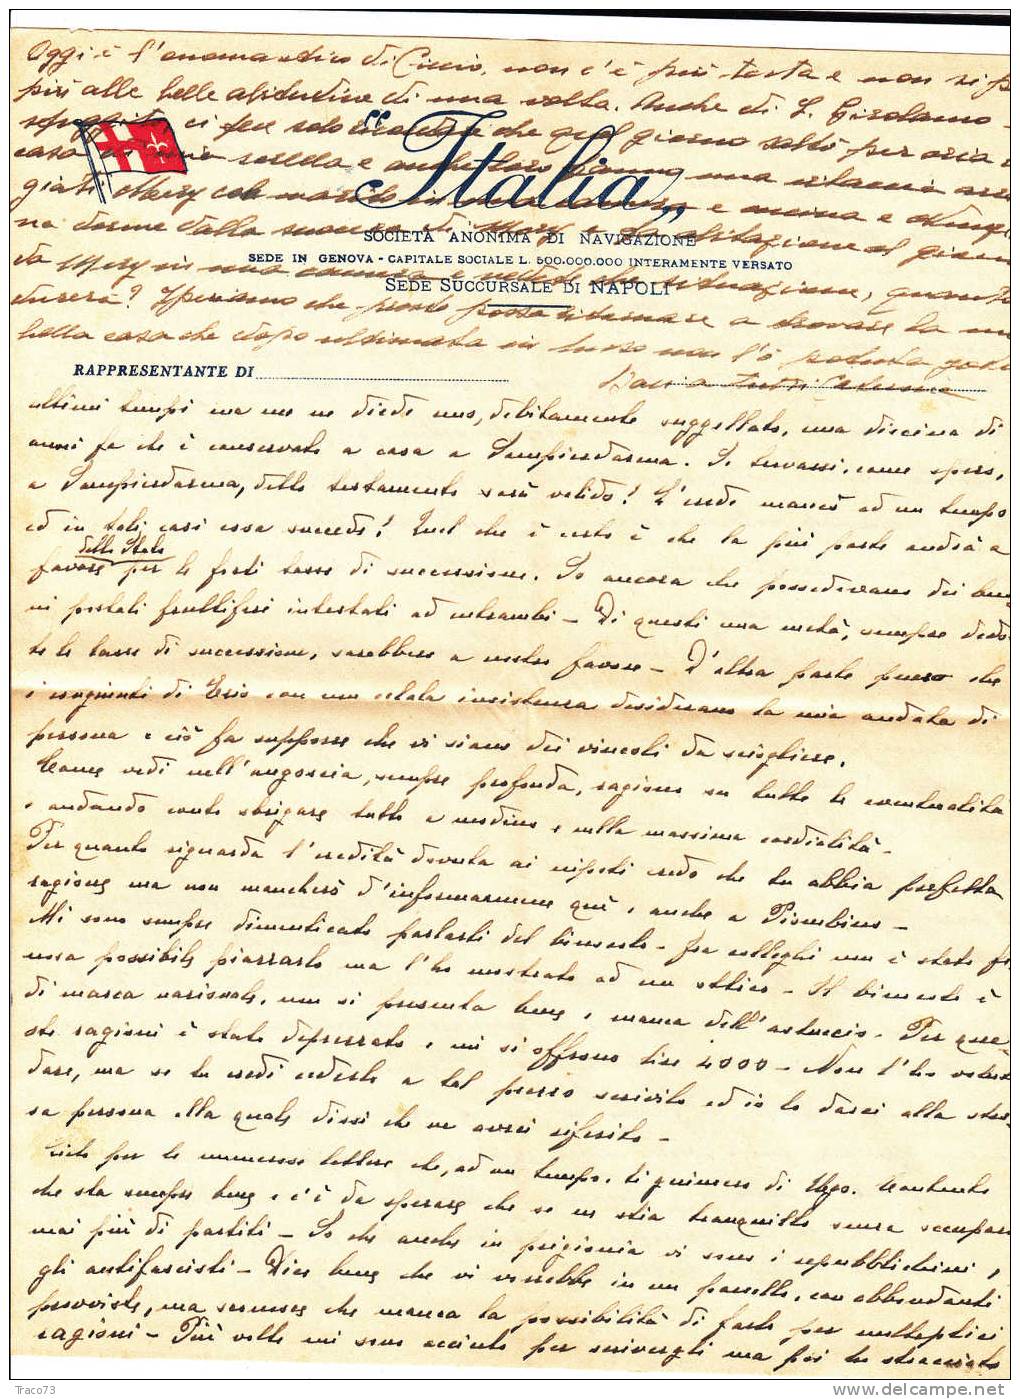 Oggi è l'onomastico di Ciccio, non c'è più testa e non si p
più alle belle abitudini di una volta. Anche di S. Girolamo
ci fece solo ricordare che quel giorno saltò per aria
casa di mia sorella e anche loro hanno una stanza
Mery col marito in una camera e cucina e
na dorme dalla suocera di Mery e fa abitazione al giorn
da Mery in una camera e vedete che situazione, quanto
durerà? Speriamo che presto possa ritornare a trovare la mia
bella casa che dopo ultimata in lusso non l'ò potuta gode
Baci a tutti Caterina
"Italia"
SOCIETÀ ANONIMA DI NAVIGAZIONE
SEDE IN GENOVA - CAPITALE SOCIALE L. 500.000.000 INTERAMENTE VERSATO
SEDE SUCCURSALE DI NAPOLI
RAPPRESENTANTE DI
ultimi tempi ma me ne diede uno, debitamente suggellato, una diecina di
anni fa che è conservato a casa a Sampierdarena. Se trovassi, come spero,
a Sampierdarena, detto testamento sarà valido? L'erede mancò ad un tempo
ed in tali casi cosa succede? Quel che è certo è che la più parte andrà a
favore dello Stato per le forti tasse di successione. So ancora che possedevano dei buo
ni postali fruttiferi intestati ad entrambi - Di questi una metà, sempre dedot
te le tasse di successione, sarebbero a nostro favore - D'altra parte penso che
i congiunti di Ezio con una celata insistenza desiderano la mia andata di
persona e ciò fa supporre che vi siano dei vincoli da sciogliere.
Come vedi nell'angoscia, sempre profonda, ragiono su tutte le eventualità
e andando conto sbrigare tutto a modino e nella massima cordialità -
Per quanto riguarda l'eredità dovuta ai nipoti credo che tu abbia perfetta
ragione ma non mancherò d'informarmene quì e anche a Piombino -
Mi sono sempre dimenticato parlarti del binocolo - fra colleghi non è stato fi
nora possibile piazzarlo ma l'ho mostrato ad un ottico - Il binocolo è
di marca nazionale, non si presenta bene e manca dell'astuccio - Per que-
ste ragioni è stato deprezzato e mi si offrono lire 4000 - Non l'ho voluto
dare, ma se tu credi cederlo a tal prezzo scrivilo ed io lo darei alla stes-
sa persona alla quale dissi che ne avrei riferito -
per le numerose lettere che, ad un tempo, ti giunsero di Ugo. Contento
che sta sempre bene e c'è da sperare che se ne stia tranquillo senza occupars
mai più di partiti - So che anche in prigionia vi sono i repubblichini,
gli antifascisti - Dice bene che vi vorrebbe in un pacello, con abbondanti
provviste, ma sennonchè manca la possibilità di farlo per molteplici
ragioni - Più volte mi sono accinto per scrivergli ma poi ho stracciato
Traco73
delcampe.net